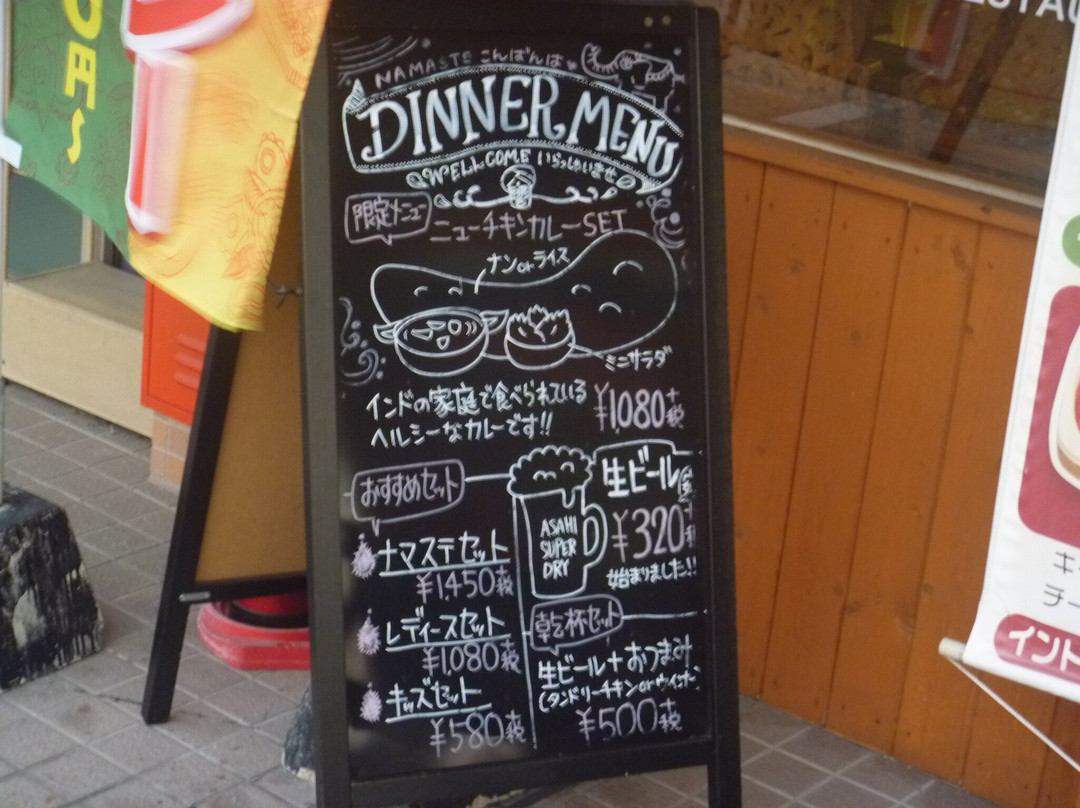 NAMASTE こんばんは
DINNER MENU
WELLCOME いらっしゃいませ
限定メニュー
ニューチキンカレーSET
ナンorライス
ミニサラダ
インドの家庭で食べられている
ヘルシーなカレーです!!
¥1,080+税
おすすめセット
ナマステセット
¥1,450+税
レディースセット
¥1,080+税
キッズセット
¥580+税
ASAHI
SUPER
DRY
生ビール
¥320+税
始まりました!!
乾杯セット
生ビール+おつまみ
(タンドリーチキンorウィンナー)
¥500+税
0円~
イント